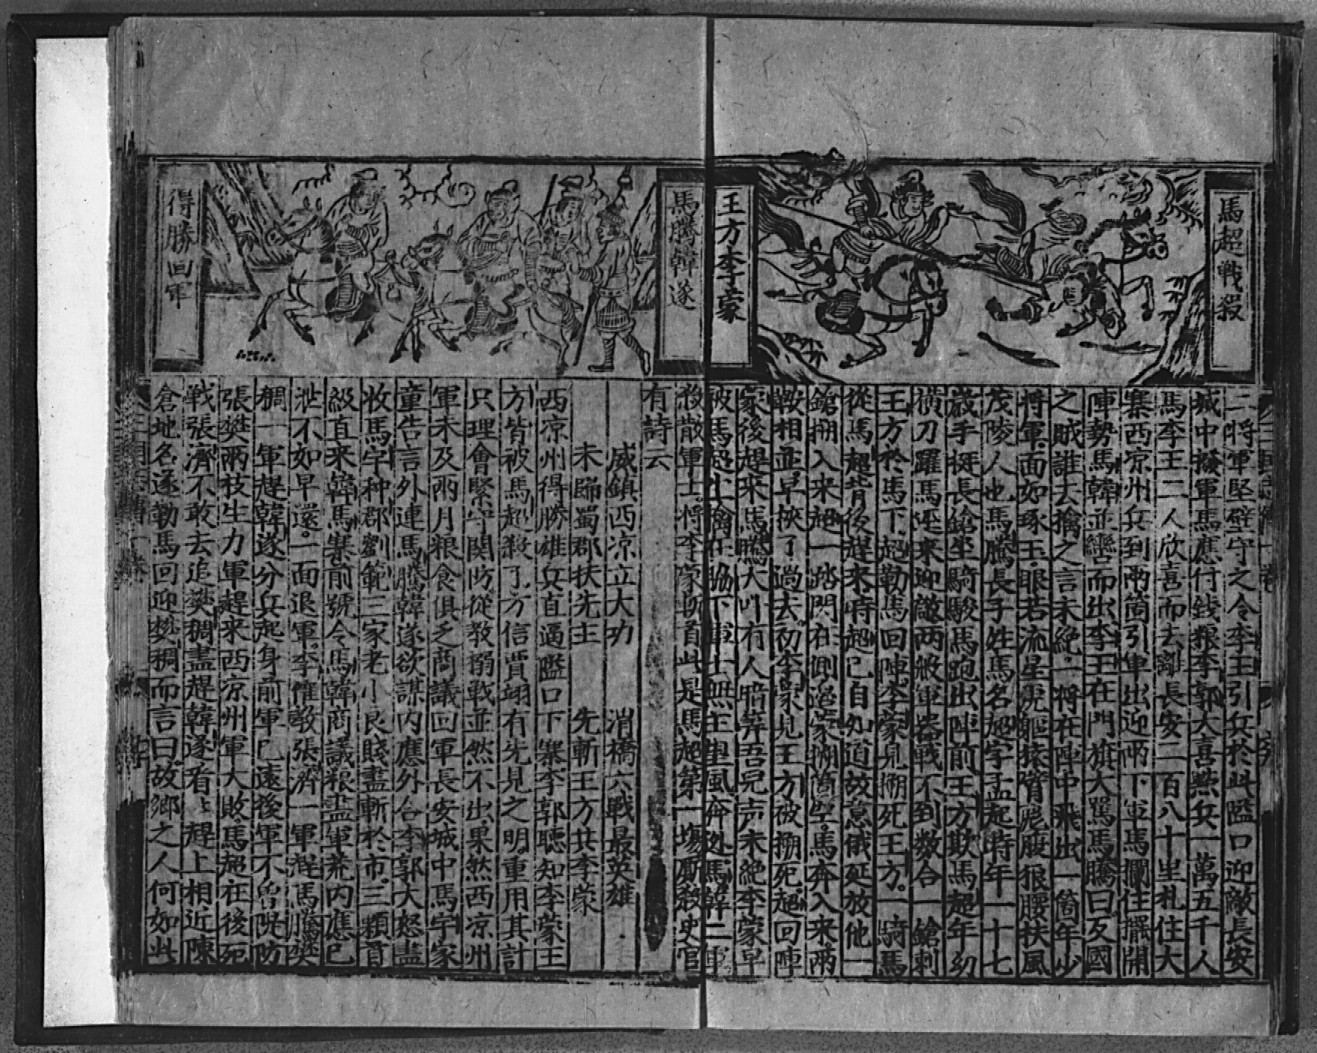 馬超戰殺
王方李蒙
二將軍堅壁守之令李王引兵於此隘口迎敵長安
城中撥軍馬應付錢粮李郭大喜點兵一萬五千人
馬李王二人欣喜而去離長安二百八十里札住大
寨西凉州兵到兩箇引軍出迎兩下軍馬攔住擺開
陣勢馬韓並轡而出李王在門旗大罵馬騰曰反國
之賊誰去擒之言未絶一將在陣中飛出一箇年少
將軍面如琢玉眼若流星虎軀猿臂彪腹狼腰扶風
茂陵人也馬騰長子姓馬名超字孟起時年一十七
歲手挺長鎗坐騎駿馬跑出陣前王方欺馬超年幼
横刀躍馬逕來迎敵兩般軍器戰不到数合一鎗刺
王方於馬下超勒馬回陣李蒙見搠死王方一騎馬
從馬超背後趕來時超已自知道故意俄延放他一
鎗搠入來超一踏閃在側邉蒙搠箇空馬奔入來兩
鞍相並早挾了過去初李蒙見王方被搠死超回陣
家後趕來馬騰大叫有人暗筭吾兒声未絶李蒙早
被馬超生擒在脇下軍士無主望風奔迯馬韓二軍
殺散軍士將李蒙斬首此是馬超第一場厮殺史官
馬騰韓遂
得勝回軍
有詩云
威鎮西凉立大功 渭橋六戰最英雄
未歸蜀郡扶先主 先斬王方共李蒙
西凉州得勝雄兵直逼隘口下寨李郭聽知李蒙王
方皆被馬超殺了方信賈翊有先見之明重用其計
只理會緊守関防從教搦戰並然不出果然西凉州
軍未及兩月粮食俱乏商議回軍長安城中馬宇家
童告言外連馬騰韓遂欲謀内應外合李郭大怒盡
收馬宇种郡劉範三家老小良賤盡斬於市三顆首
級直來韓馬寨前號令馬韓商議粮盡軍兼内應已
泄不如早還一面退軍李傕敎張濟一軍趕馬騰樊
稠一軍趕韓遂分兵起身前軍已遠後軍不曽隄防
張樊兩枝生力軍趕來西凉州軍大敗馬超在後死
戰張濟不敢去追樊稠盡趕韓遂看看趕上相近陳
倉地名遂勒馬回迎樊稠而言曰故鄉之人何如此